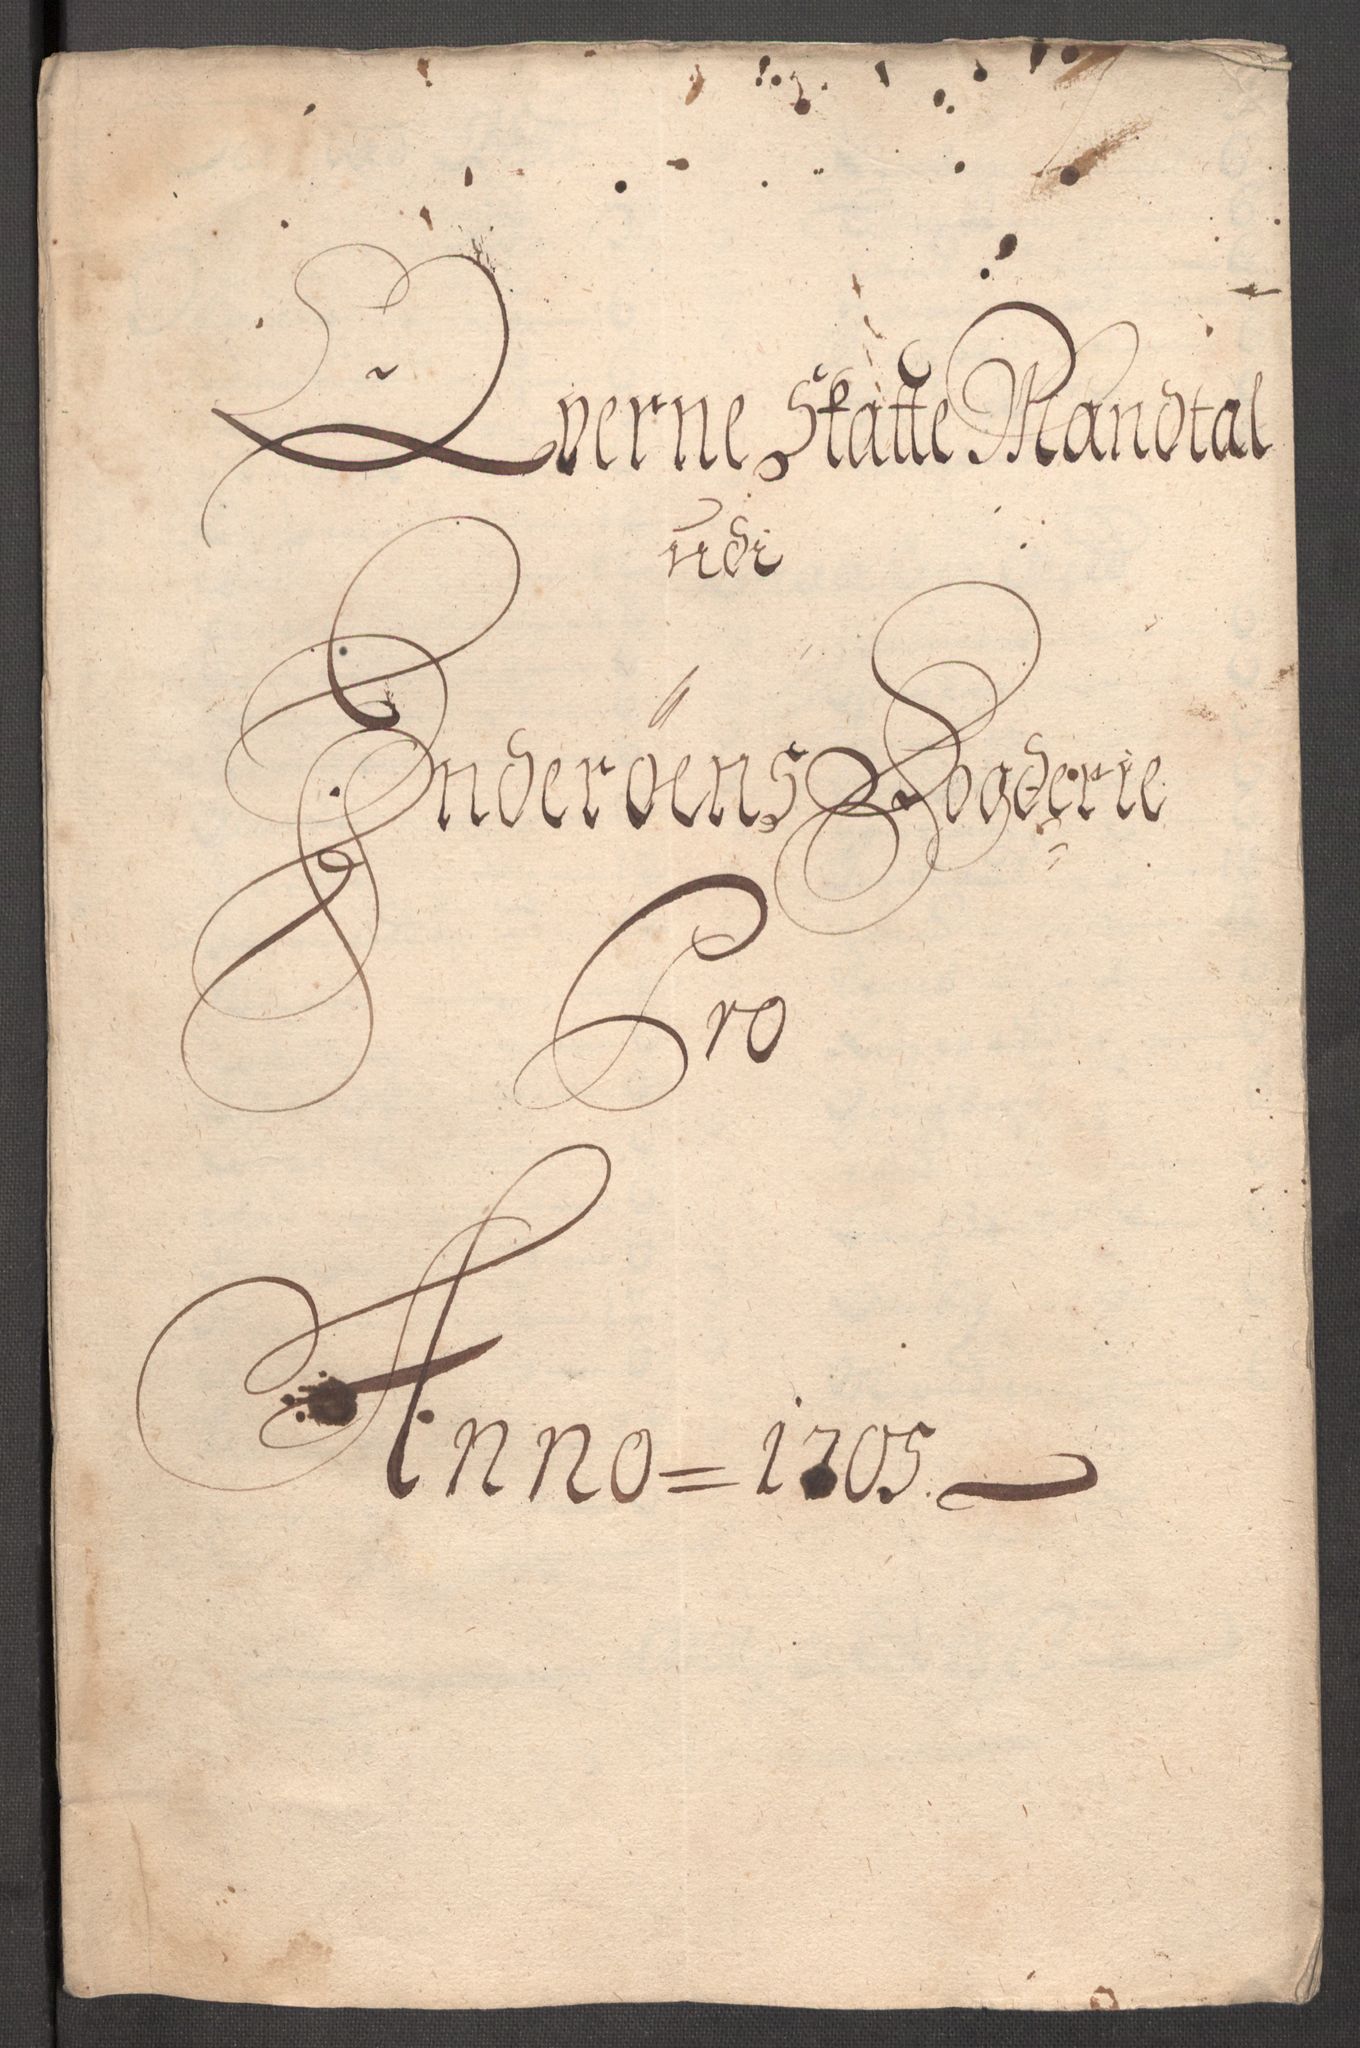 Qverne Skatte Mandtal
udi
Inderöens Fogderie
Pro
Anno = 1705.